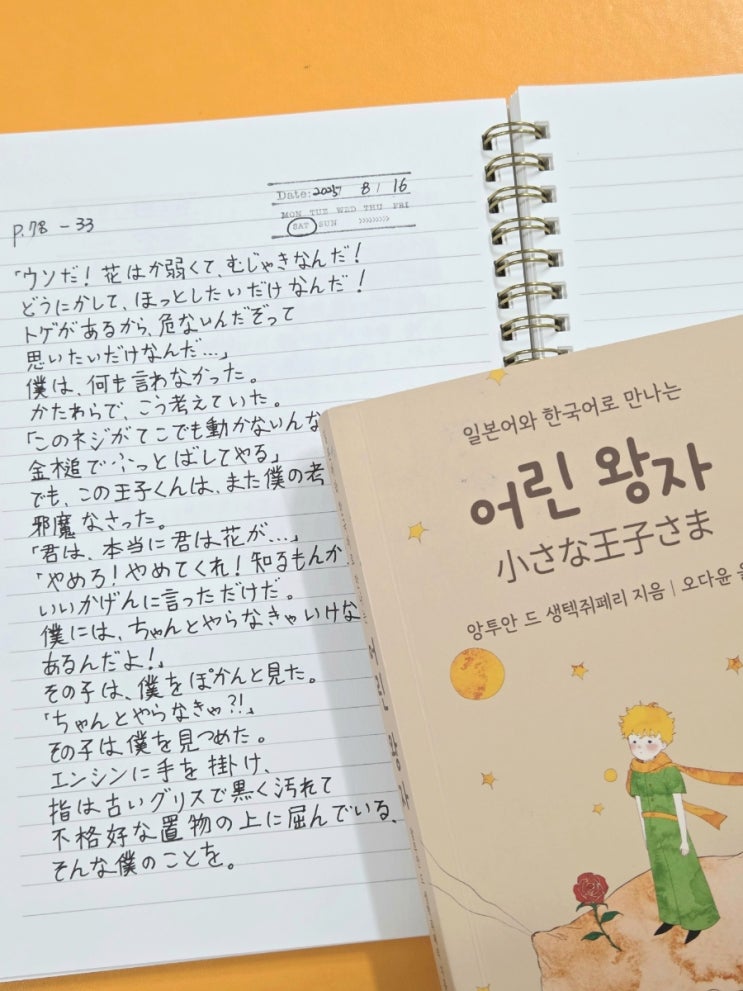 Date: 2025 8 / 16
MON TUE WED THU FRI
SAT SUN
P.78 - 33
「ウソだ！花はか弱くて、むじゃきなんだ！
どうにかして、ほっとしたいだけなんだ！
トゲがあるから、危ないんだぞって
思いたいだけなんだ…」
僕は、何も言わなかった。
かたわらで、こう考えていた。
「このネジがてこでも動かないんな
金槌でふっとばしてやる」
でも、この王子くんは、また僕の考
邪魔なさった。
「君は、本当に君は花が…」
「やめろ！やめてくれ！知るもんか
いいかげんに言っただけだ。
僕には、ちゃんとやらなきゃいけな
あるんだよ！」
その子は、僕をぽかんと見た。
「ちゃんとやらなきゃ?!」
その子は、僕を見つめた。
エンシンに手を掛け、
指は古いグリスで黒く汚れて
不格好な置物の上に屈んでいる、
そんな僕のことを。
일본어와 한국어로 만나는
어린 왕자
小さな王子さま
앙투안 드 생텍쥐페리 지음 | 오다윤
어린 왕자